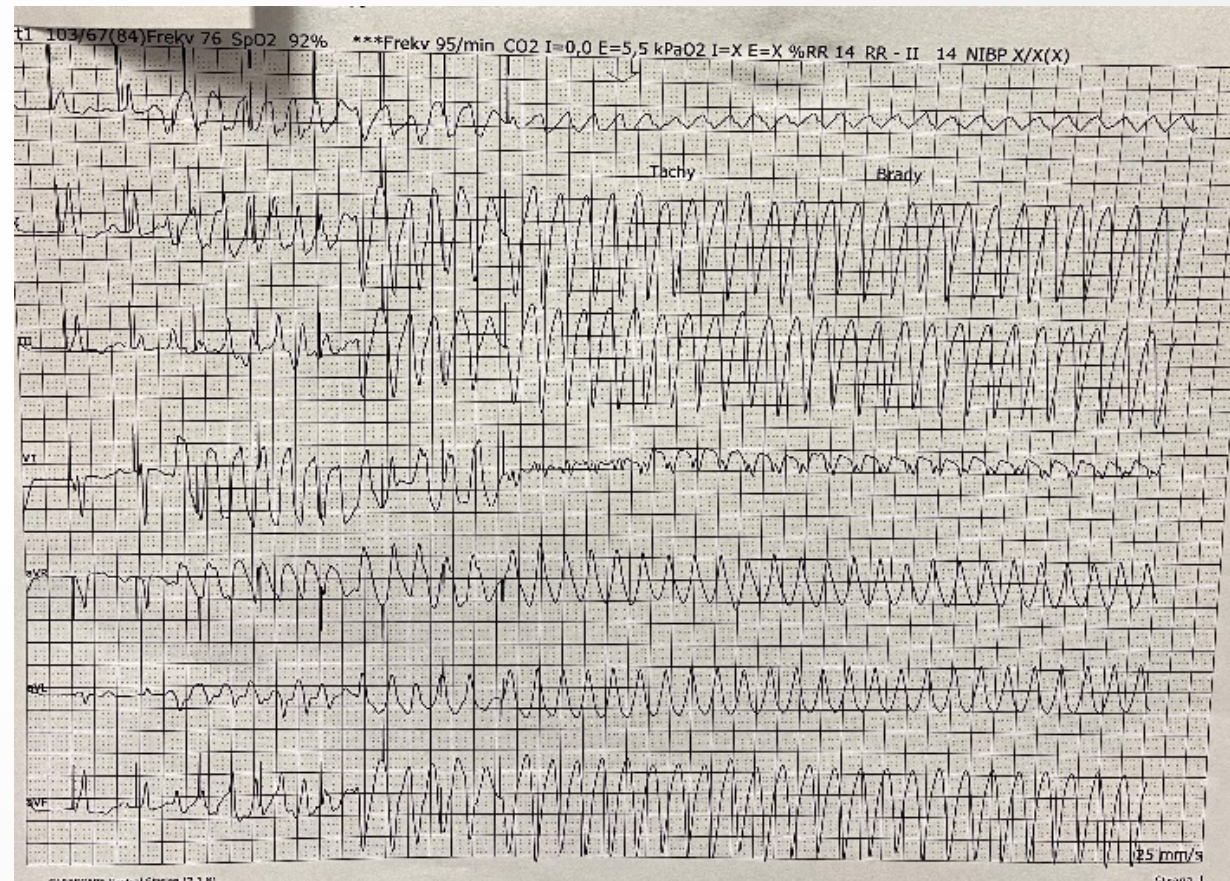 t1 103/67(84)Frekv 76 SpO2 92% ***Frekv 95/min CO2 I=0,0 E=5,5 kPaO2 I=X E=X %RR 14 RR - II 14 NIBP X/X(X)
Tachy Brady
III
V1
aVR
aVL
aVF
25 mm/s